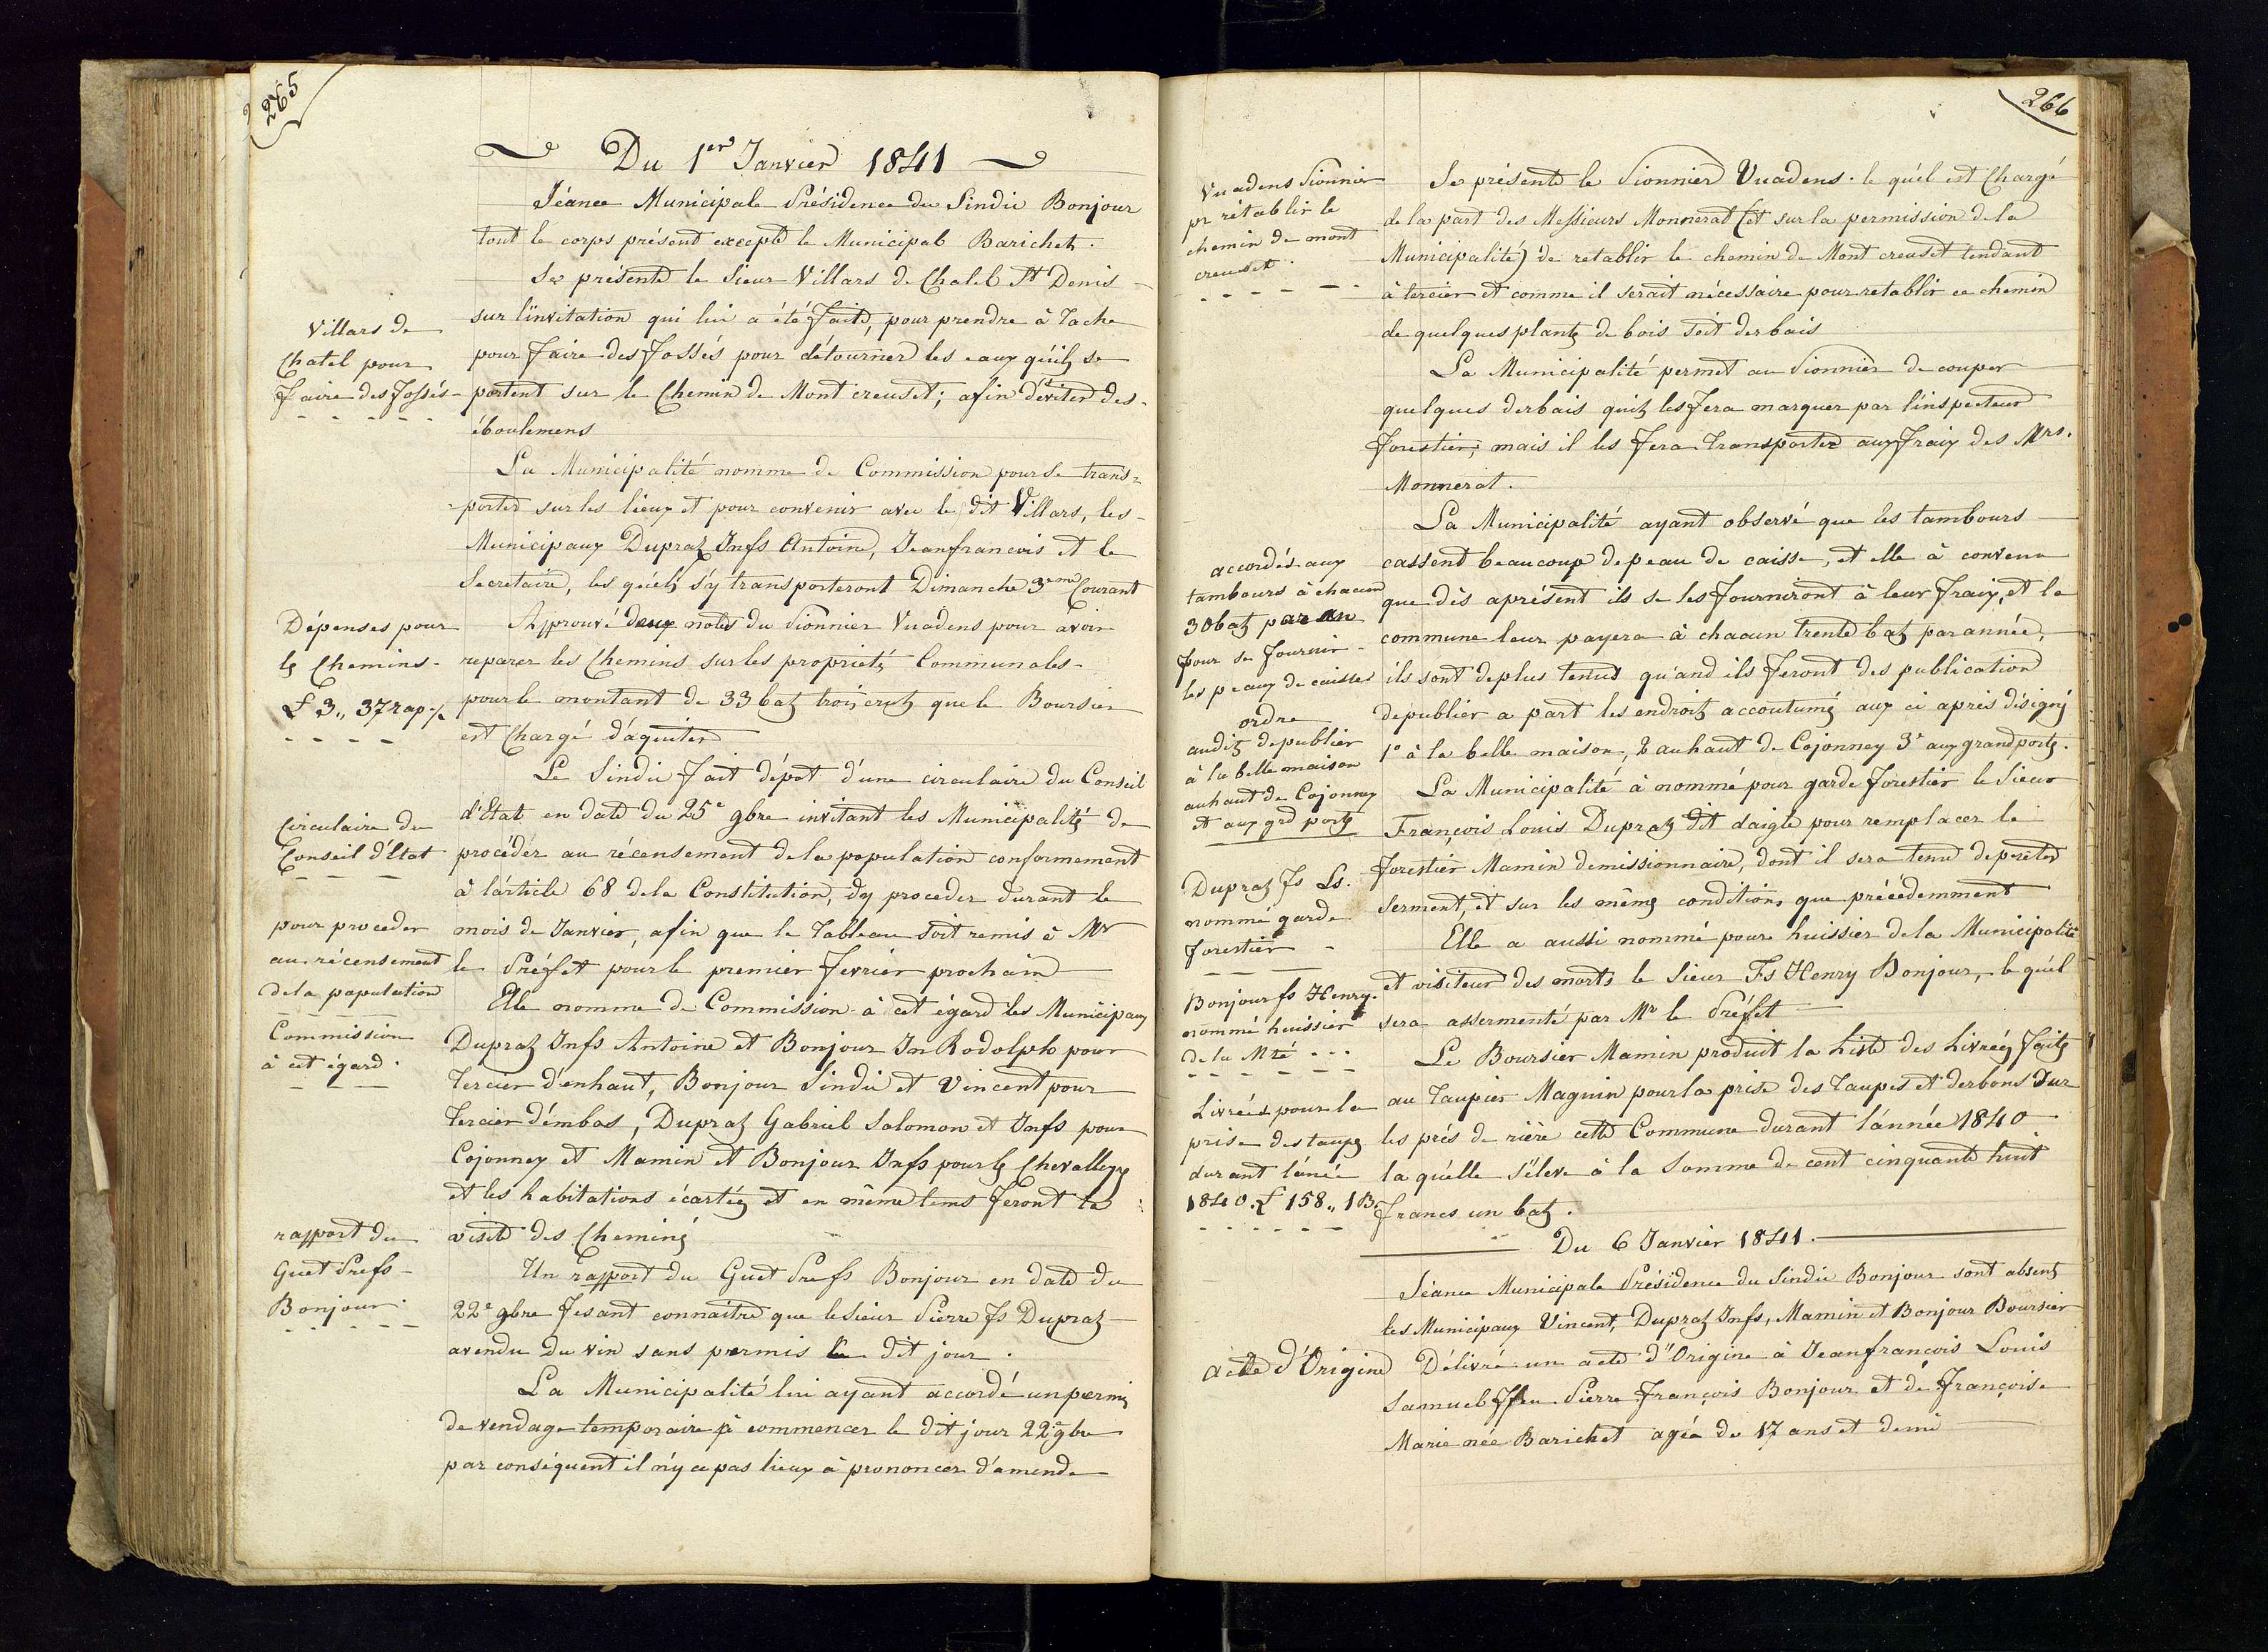 265
Du 1er Janvier 1841
Séance Municipale Présidence du Sindic Bonjour
tout le corps présent excepté le Municipal Barichet.
Se présente le Sieur Villars de Chatel St Denis
Villars de
Chatel pour
faire des fossés
sur l'invitation qui lui a été faite, pour prendre à tache
pour faire des fossés pour détourner les eaux qu'ils se
portent sur le Chemin de Mont creuset; afin d'éviter des
éboulemens
La Municipalité nomme de Commission pour se trans=
=porter sur les lieux et pour convenir avec le dit Villars, les
Municipaux Dupraz Jnfs Antoine, Jeanfrancois et le
Secretaire, les quels s'y transporteront Dimanche 3eme Courant
Dépenses pour
ls Chemins.
£ 3,, 37 rap
Approuvé deux notes du Pionnier Vuadens pour avoir
reparer les Chemins sur les proprietés Communales
pour le montant de 33 batz trois crutz que le Boursier
est Chargé d'aquiter
Le Sindic fait dépot d'une circulaire du Conseil
Circulaire du
Conseil d'Etat
pour proceder
au récensement
de la population
Commission
à cet égard.
d'Etat en date du 25e 9bre invitant les Municipalités de
procéder au récensement de la population conformement
à l'article 68 de la Constitution, d'y proceder durant le
mois de Janvier, afin que le Tableau soit remis à Mr
le Préfet pour le premier fevrier prochain
Elle nomme de Commission à cet égard les Municipaux
Dupraz Jnfs Antoine et Bonjour Jn Rodolph pour
Tercier d'enhaut, Bonjour Sindic et Vincent pour
Tercier d'embas, Dupraz Gabriel Salomon et Jnfs pour
Cojonney et Mamin et Bonjour Jnfs pour ls Chevalleyre
et les habitations écartées et en même tems feront la
visite des Cheminés
rapport du
Guet Prefs
Bonjour.
Un rapport du Guet Prefs Bonjour en date du
22e 9bre fesant connaitre que le sieur Pierre fs Dupraz
a vendu du vin sans permis le dit jour.
La Municipalité lui ayant accordé un permis
de vendage temporaire à commencer le dit jour 22e 9bre
par conséquent il n'y a pas lieux à prononcer d'amende
266
Vuadens Pionnier
pr rétablir le
chemin de mont
creuset.
Se présente le Pionnier Vuadens. le quel est Chargé
de la part des Messieurs Monnerat (et sur la permission de la
Municipalité) de retablir le chemin de Mont creuset tendant
à tercier et comme il serait nécessaire pour retablir ce chemin
de quelques plantz de bois soit derbais
La Municipalité permet au Pionnier de couper
quelques derbais quil les fera marquer par l'inspecteur
forestier; mais il les fera transporter aux fraix des Mrs.
Monnerat.
accordés aux
tambours à chacun
30 batz par an
pour se fournir
les peaux de caisses
ordre
audits de publier
à la belle maison
au haut de Cojonney
et aux grd ports
La Municipalité ayant observé que les tambours
cassent beaucoup de peau de caisse, et elle à convenu
que dès aprésent ils se les fourniront à leur fraix, et la
commune leur payera à chacun trente batz par année,
ils sont de plus tenus qu'and ils feront des publication
de publier a part les endroits accoutumés aux ci après désignés
1° à la belle maison, 2 au haut de Cojonney 3° aux grand ports.
Dupraz fs Ls.
nommé garde
forestier
La Municipalité à nommé pour garde forestier le Sieur
François Louis Dupraz dit daigle pour remplacer le
forestier Mamin demissionnaire, dont il sera tenu de preter
serment, et sur les mêmes conditions que précédemment
Bonjour fs Henry.
nommé huissier
de la Mté
Elle a aussi nommé pour huissier de la Municipalité
et visiteur des morts le Sieur Fs Henry Bonjour, le quel
sera assermenté par Mr le Préfet
Livrées pour la
prise des taupes
durant l'anée
1840. £ 158,, 1 B.
Le Boursier Mamin produit la Liste des Livrées faites
au Taupier Magnin pour la prise des Taupes et derbons sur
les prés de rière cette Commune durant l'année 1840
la quelle s'éleve à la Somme de cent cinquante huit
francs un batz.
Du 6 Janvier 1841.
Séance Municipale Présidence du Sindic Bonjour sont absents
les Municipaux Vincent, Dupraz Jnfs, Mamin et Bonjour Boursier
acte d'Origine
Délivré un acte d'Origine à Jeanfrancois Louis
Samuel ffeu Pierre François Bonjour et de Françoise
Marie née Barichet agée de 17 ans et demi